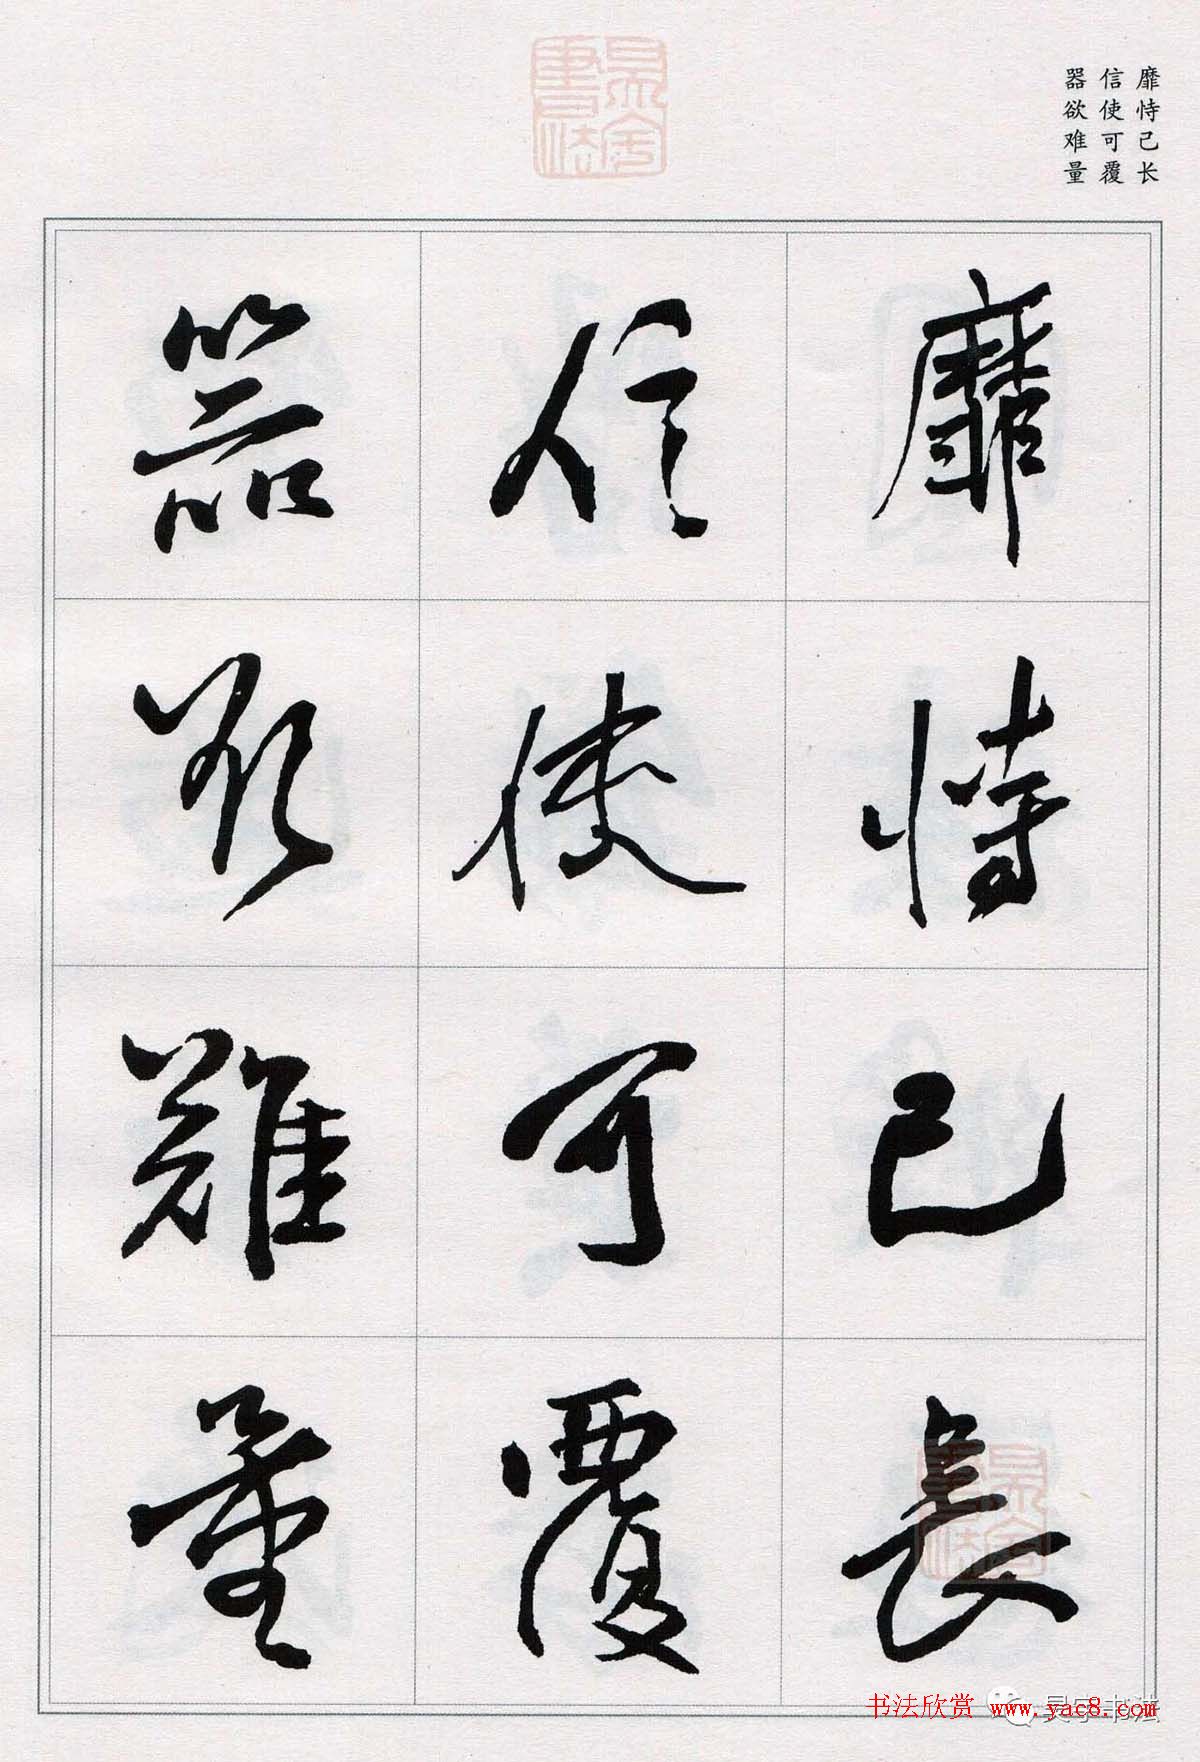 靡恃己长
信使可覆
器欲难量
靡恃己長
信使可覆
器欲難量
書法欣赏 www.yac8.com
昊宇书法